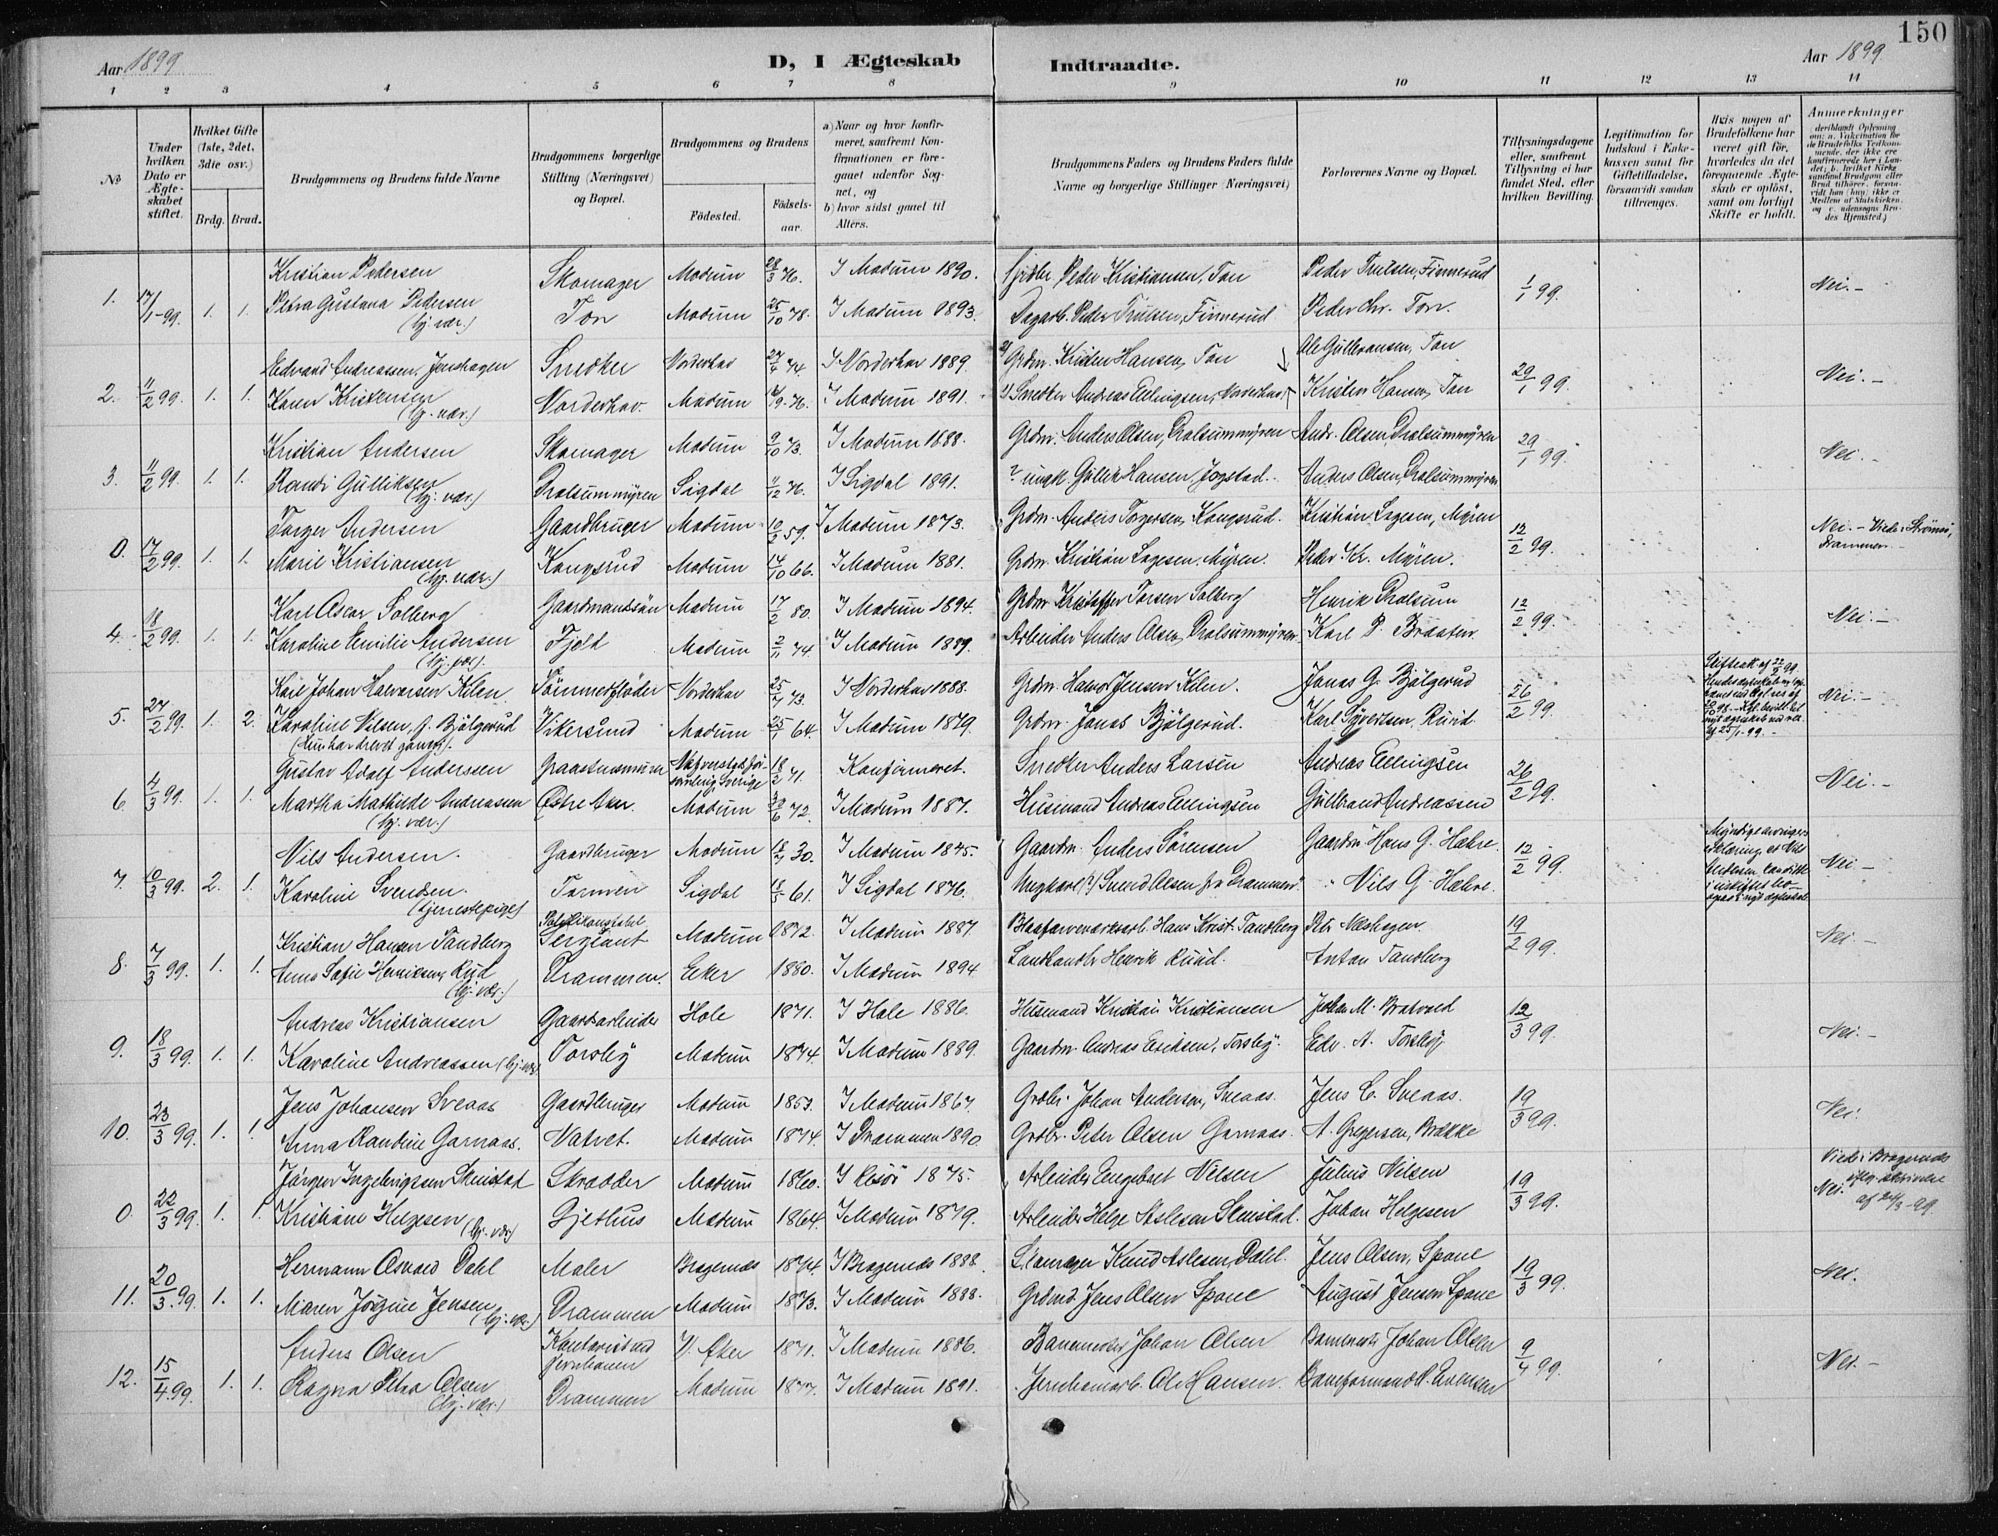 150
Aar 1899
D, I Ægteskab Indtraadte.
Aar 1899
1 2 3 4 5 6 7 8 9 10 11 12 13 14
No
Under hvilken Dato er Ægteskabet stiftet.
Hvilket Gifte (1ste, 2det, 3die osv.)
Brdg. Brud.
Brudgommens og Brudens fulde Navne
Brudgommens borgerlige Stilling (Næringsvei) og Bopæl.
Brudgommens og Brudens
Fødested. Fødselsaar.
a) Naar og hvor konfirmeret, saafremt Konfirmationen er foregaaet udenfor Sognet, og
b) hvor sidst gaaet til Alters.
Brudgommens Faders og Brudens Faders fulde Navne og borgerlige Stillinger (Næringsvei)
Forlovernes Navne og Bopæl.
Tillysningsdagene eller, saafremt Tillysning ei har fundet Sted, efter hvilken Bevilling.
Legitimation for Indskud i Enkekassen samt for Giftetilladelse, forsaavidt saadan tiltrænges.
Hvis nogen af Brudefolkene har været gift før, hvorledes da det foregaaende Ægteskab er opløst, samt om lovligt Skifte er holdt.
Anmerkninger
Kristian Pedersen Skomager Modum 28/3 76. I Modum 1890. Peder Kristiansen, Ton Peder Trulsen, Finnerud
1. 17/1-99. 1. 1. Petra Gustava Pedersen Ton Modum 25/10 78. I Modum 1893. Dagarb. Peder Trulsen, Finnerud Peder Chr. Ton. 1/1 99. Nei.-
(hj. vær.)
Edvard Andreassen, Jenshagen Snedker Norderhov 74. I Norderhov 1889. 2) Grdm. Kristen Hansen, Ton Ole Gulbransen, Ton
2. 11/2 99. 1. 1. Karen Kristensen Norderhov. Modum 76. I Modum 1891. 1) Snedker Andreas Ellingsen, Norderhov Kristen Hansen, Ton 29/1 99. Nei.-
(hj. vær.)
Kristian Andersen Skomager Modum 9/10 73. I Modum 1888. Grdm. Anders Olsen, Dralsummyren Andr. Olsen Dralsummyren
3. 11/2 99. 1. 1. Randi Gulliksen Dralsummyren Sigdal 11/12 76. I Sigdal 1891. ungk. Gullik Hansen, Jogstad. Anders Olsen, Dralsummyren 29/1 99. Nei.-
(hj. vær.)
Torger Andersen Gaardbruger Modum 59. I Modum 1873. Grdm. Anders Torgersen, Kongsrud. Kristian Lagesen, Myren
0. 17/2 99. 1. 1. Marie Kristiansen Kongsrud Modum 14/10 66. I Modum 1881. Grdm. Kristian Lagesen, Myren. Peder Kr. Myren. 12/2 99. Nei.- Viede i Strømsø, Drammen.
(hj. vær.)
Karl Oscar Solberg Gaardmandssøn Modum 17/2 80. I Modum 1894. Grdm. Kristoffer Torsen Solberg Henrik Dralsum
4. 18/2 99. 1. 1. Karoline Emilie Andersen Fjeld Modum 2/11 74 I Modum 1889. Arbeider Anders Olsen, Dralsummyren Karl P. Braaten. 12/2 99. Nei.-
(hj. vær.)
Karl Johan Halvorsen Kilen Tømmerfløder Norderhov 73. I Norderhov 1888. Grdm. Halvor Jensen Kilen. Jonas G. Bjølgerud
5. 27/2 99. 1. 2. Karoline Nilsen, G. Bjølgerud Vikersund Modum 25/1 64. I Modum 1879. Grdm. Jonas Bjølgerud. Karl Syvertsen, Ruud 26/2 99. Nei.-
Gustav Adolf Anderssen Graastensmurer 18/2 71. Konfirmeret. Snedker Anders Larsen Andreas Ellingsen
6. 4/3 99. 1. 1. Martha Mathilde Andreassen Østre Aker Modum 72. I Modum 1887. Husmand Andreas Ellingsen Gulbrand Andreassen 26/2 99. Nei.-
(hj. vær.)
Nils Andersen. Gaardbruger Modum 30. I Modum 1845. Gaardm. Anders Sørensen Gaardm. Hans G. Hæhre.
7. 10/3 99. 2. 1. Karoline Svendsen. Sigdal 61. I Sigdal 1876. Ungkarl (?) Svend Olsen fra Drammen " Nils G. Hæhre. 12/2 99. Nei-
(tjenestepige)
Kristian Hansen Tandberg Politikonstabel Sergeant Modum 1872. I Modum 1887. Blaafarveværksarb. Hans Krist. Tandberg Petr. Næshagen.
8. 7/3 99. 1. 1. Anna Sofie Henriksen, Rud Drammen. Eker 1880. I Modum 1894. Landhandler Henrik Ruud. Anton Tandberg 19/2 99. Nei.-
(hj. vær.)
Andreas Kristiansen Gaardarbeider Hole 1871. I Hole 1886. Husmand Kristian Kristiansen Johan M. Bratvold
9. 18/3 99. 1. 1. Karoline Andreassen (hj. vær. Torsby Modum 1874. I Modum 1889. Gaardm. Andreas Eriksen, Torsby. Edv. A. Torsby. 12/3 99. Nei.-
Jens Johansen Sveaas Gaardbruger Modum 1853. I Modum 1867. Grdbr. Johan Andersen, Sveaas. Jens C. Sveaas.
10. 23/3 99. 1. 1. Anna Randine Garnaas. Modum 1874. I Drammen 1890. Grdbr. Peter Olsen Garnaas. A. Gregersen, Brække 19/3 99. Nei.
Jørgen Ingebrigtsen Stenstad Skrædder Modum 1860. I Risør 1875. Arbeider Engebret Nilsen Julius Nilsen
0. 22/3 99. 1. 1. Kristiane Helgesen (hj. vær) Gjethus Modum 1864. I Modum 1879. Arbeider Helge Aslesen Stenstad. Johan Helgesen 19/3 99. Nei. Viede i Bragernes iflg. skrivelse af 24/3-99.
Hermann Osvald Dahl Maler Bragernæs 1874. I Bragernæs 1888. Skomager Knud Aslesen, Dahl. Jens Olsen, Spone
11. 20/3 99. 1. 1. Maren Josefine Jensen (hj. vær.) Drammen Modum 1873. I Modum 1888. Grdmd. Jens Olsen Spone August Jensen Spone 19/3 99. Nei.
Anders Olsen Kontorist ved Jernbanen V. Aker 1871. I Modum 1886. Banemester Johan Olsen Banemester Johan Olsen
12. 15/4 99. 1. 1. Ragna Petra Olsen Drammen Modum 1877. I Modum 1891. Jernbanearb. Ole Hansen. Baneformand P. Evensen 9/4 99. Nei.-
(hj. vær.)